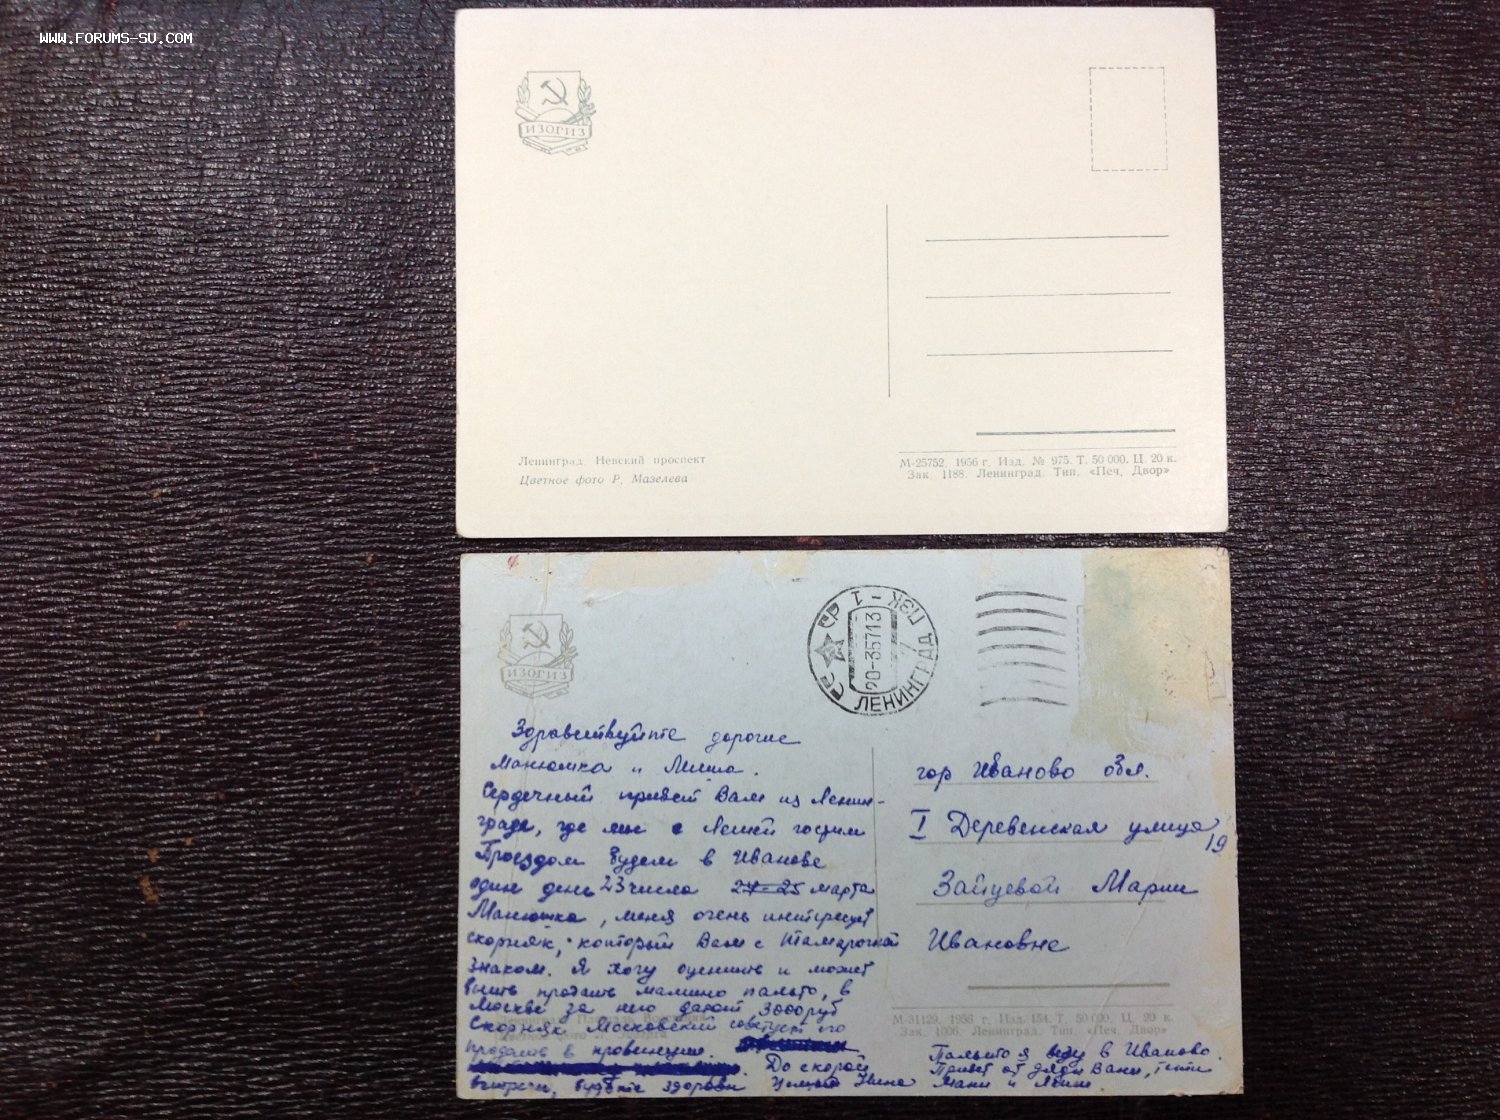 WWW.FORUMS-SU.COM
ИЗОГИЗ
Ленинград. Невский проспект
Цветное фото Р. Мазелева
М-25752. 1956 г. Изд. № 975. Т. 50 000. Ц. 20 к.
Зак. 1188. Ленинград. Тип. «Печ. Двор»
ИЗОГИЗ
СССР
ЛЕНИНГРАД ПЭК-1
20-35713
7
Здравствуйте дорогие
Манюшка и
Сердечный привет Вам из Ленин-
града, где мы с Лешей гостим
Проездом будем в Иванове
один день 23 числа 24-25 марта
Манюшка, меня очень интересует
скорняк, который Вам с Тамарочкой
знаком. Я хочу оценить и может
быть продать мамино пальто, в
Москве за него дают 3000 руб
Скорняк Московский советует его
продать в провинцию.
До скорой
встречи, будьте здоровы Нина
гор Иваново обл.
I Деревенская улица
19
Зайцевой Марии
Ивановне
М-31129. 1956 г. Изд. 154. Т. 50 000. Ц. 20 к.
Зак. 1006. Ленинград. Тип. «Печ. Двор»
Пальто я везу в Иваново.
Привет от дяди Вани, тети
Мани и